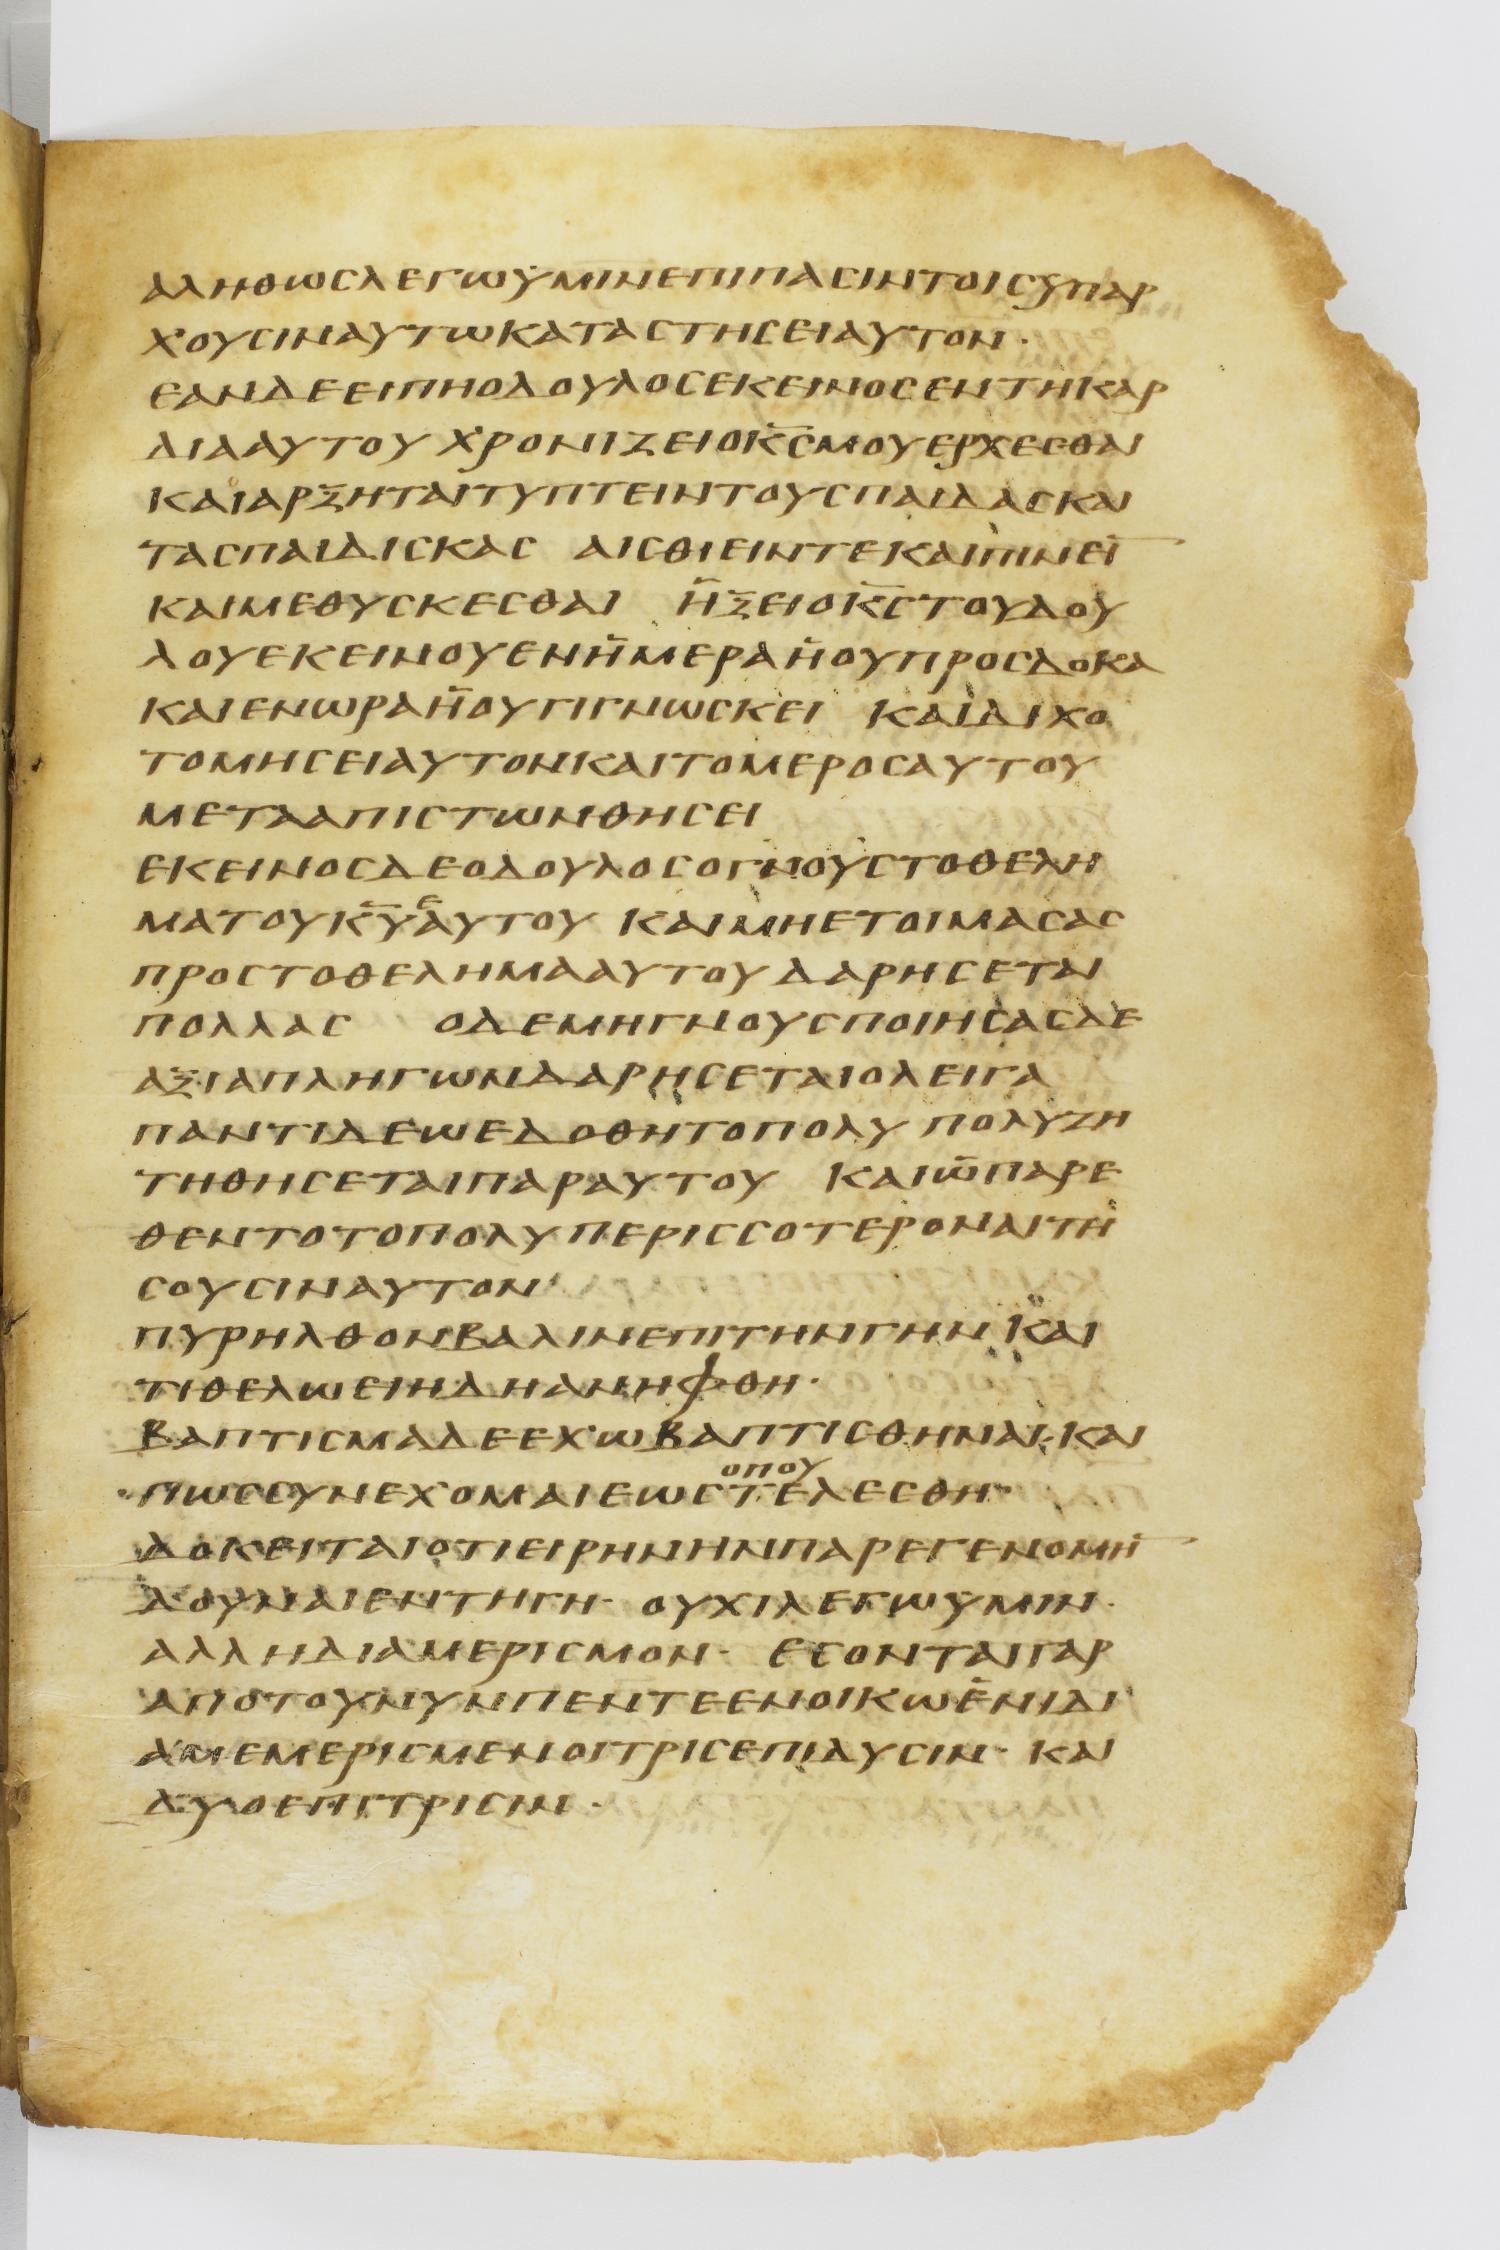 ΑΛΗΘΩΣΛΕΓΩΫΜΙΝΕΠΙΠΑΣΙΝΤΟΙΣΫΠΑΡ
ΧΟΥΣΙΝΑΥΤΩΚΑΤΑΣΤΗΣΕΙΑΥΤΟΝ·
ΕΑΝΔΕΕΙΠΗΟΔΟΥΛΟΣΕΚΕΙΝΟΣΕΝΤΗΚΑΡ
ΔΙΑΑΥΤΟΥΧΡΟΝΙΖΕΙΟΚ̅Σ̅ΜΟΥΕΡΧΕΣΘΑΙ
ΚΑΙΑΡΞΗΤΑΙΤΥΠΤΕΙΝΤΟΥΣΠΑΙΔΑΣΚΑΙ
ΤΑΣΠΑΙΔΙΣΚΑΣ ΑΙΣΘΙΕΙΝΤΕΚΑΙΠΙΝΕΙ̅
ΚΑΙΜΕΘΥΣΚΕΣΘΑΙ ΗΞΕΙΟΚ̅Σ̅ΤΟΥΔΟΥ
ΛΟΥΕΚΕΙΝΟΥΕΝΗΜΕΡΑΗΟΥΠΡΟΣΔΟΚΑ
ΚΑΙΕΝΩΡΑΗΟΥΓΙΓΝΩΣΚΕΙ ΚΑΙΔΙΧΟ
ΤΟΜΗΣΕΙΑΥΤΟΝΚΑΙΤΟΜΕΡΟΣΑΥΤΟΥ
ΜΕΤΑΑΠΙΣΤΩΝΘΗΣΕΙ
ΕΚΕΙΝΟΣΔΕΟΔΟΥΛΟΣΟΓΝΟΥΣΤΟΘΕΛΗ
ΜΑΤΟΥΚ̅Υ̅ΕΑΥΤΟΥ ΚΑΙΜΗΕΤΟΙΜΑΣΑΣ
ΠΡΟΣΤΟΘΕΛΗΜΑΑΥΤΟΥΔΑΡΗΣΕΤΑΙ
ΠΟΛΛΑΣ ΟΔΕΜΗΓΝΟΥΣΠΟΙΗΣΑΣΔΕ
ΑΞΙΑΠΛΗΓΩΝΔΑΡΗΣΕΤΑΙΟΛΕΙΓΑ
ΠΑΝΤΙΔΕΩΕΔΟΘΗΤΟΠΟΛΥ ΠΟΛΥΖΗ
ΤΗΘΗΣΕΤΑΙΠΑΡΑΥΤΟΥ ΚΑΙΩΠΑΡΕ
ΘΕΝΤΟΤΟΠΟΛΥΠΕΡΙΣΣΟΤΕΡΟΝΑΙΤΗ
ΣΟΥΣΙΝΑΥΤΟΝ
ΠΥΡΗΛΘΟΝΒΑΛΙΝΕΠΙΤΗΝΓΗΝ ΚΑΙ
ΤΙΘΕΛΩΕΙΗΔΗΑΝΗΦΘΗ·
ΒΑΠΤΙΣΜΑΔΕΕΧΩΒΑΠΤΙΣΘΗΝΑΙ·ΚΑΙ
ΠΩΣΣΥΝΕΧΟΜΑΙΕΩΣΟΠΟΥΤΕΛΕΣΘΗ·
ΔΟΚΕΙΤΑΙΟΤΙΕΙΡΗΝΗΝΠΑΡΕΓΕΝΟΜΗ̅
ΔΟΥΝΑΙΕΝΤΗΓΗ· ΟΥΧΙΛΕΓΩΫΜΙΝ·
ΑΛΛΗΔΙΑΜΕΡΙΣΜΟΝ· ΕΣΟΝΤΑΙΓΑΡ
ΑΠΟΤΟΥΝΥΝΠΕΝΤΕΕΝΟΙΚΩΕΝΙΔΙ
ΑΜΕΜΕΡΙΣΜΕΝΟΙΤΡΙΣΕΠΙΔΥΣΙΝ· ΚΑΙ
ΔΥΟΕΠΙΤΡΙΣΙΝ·